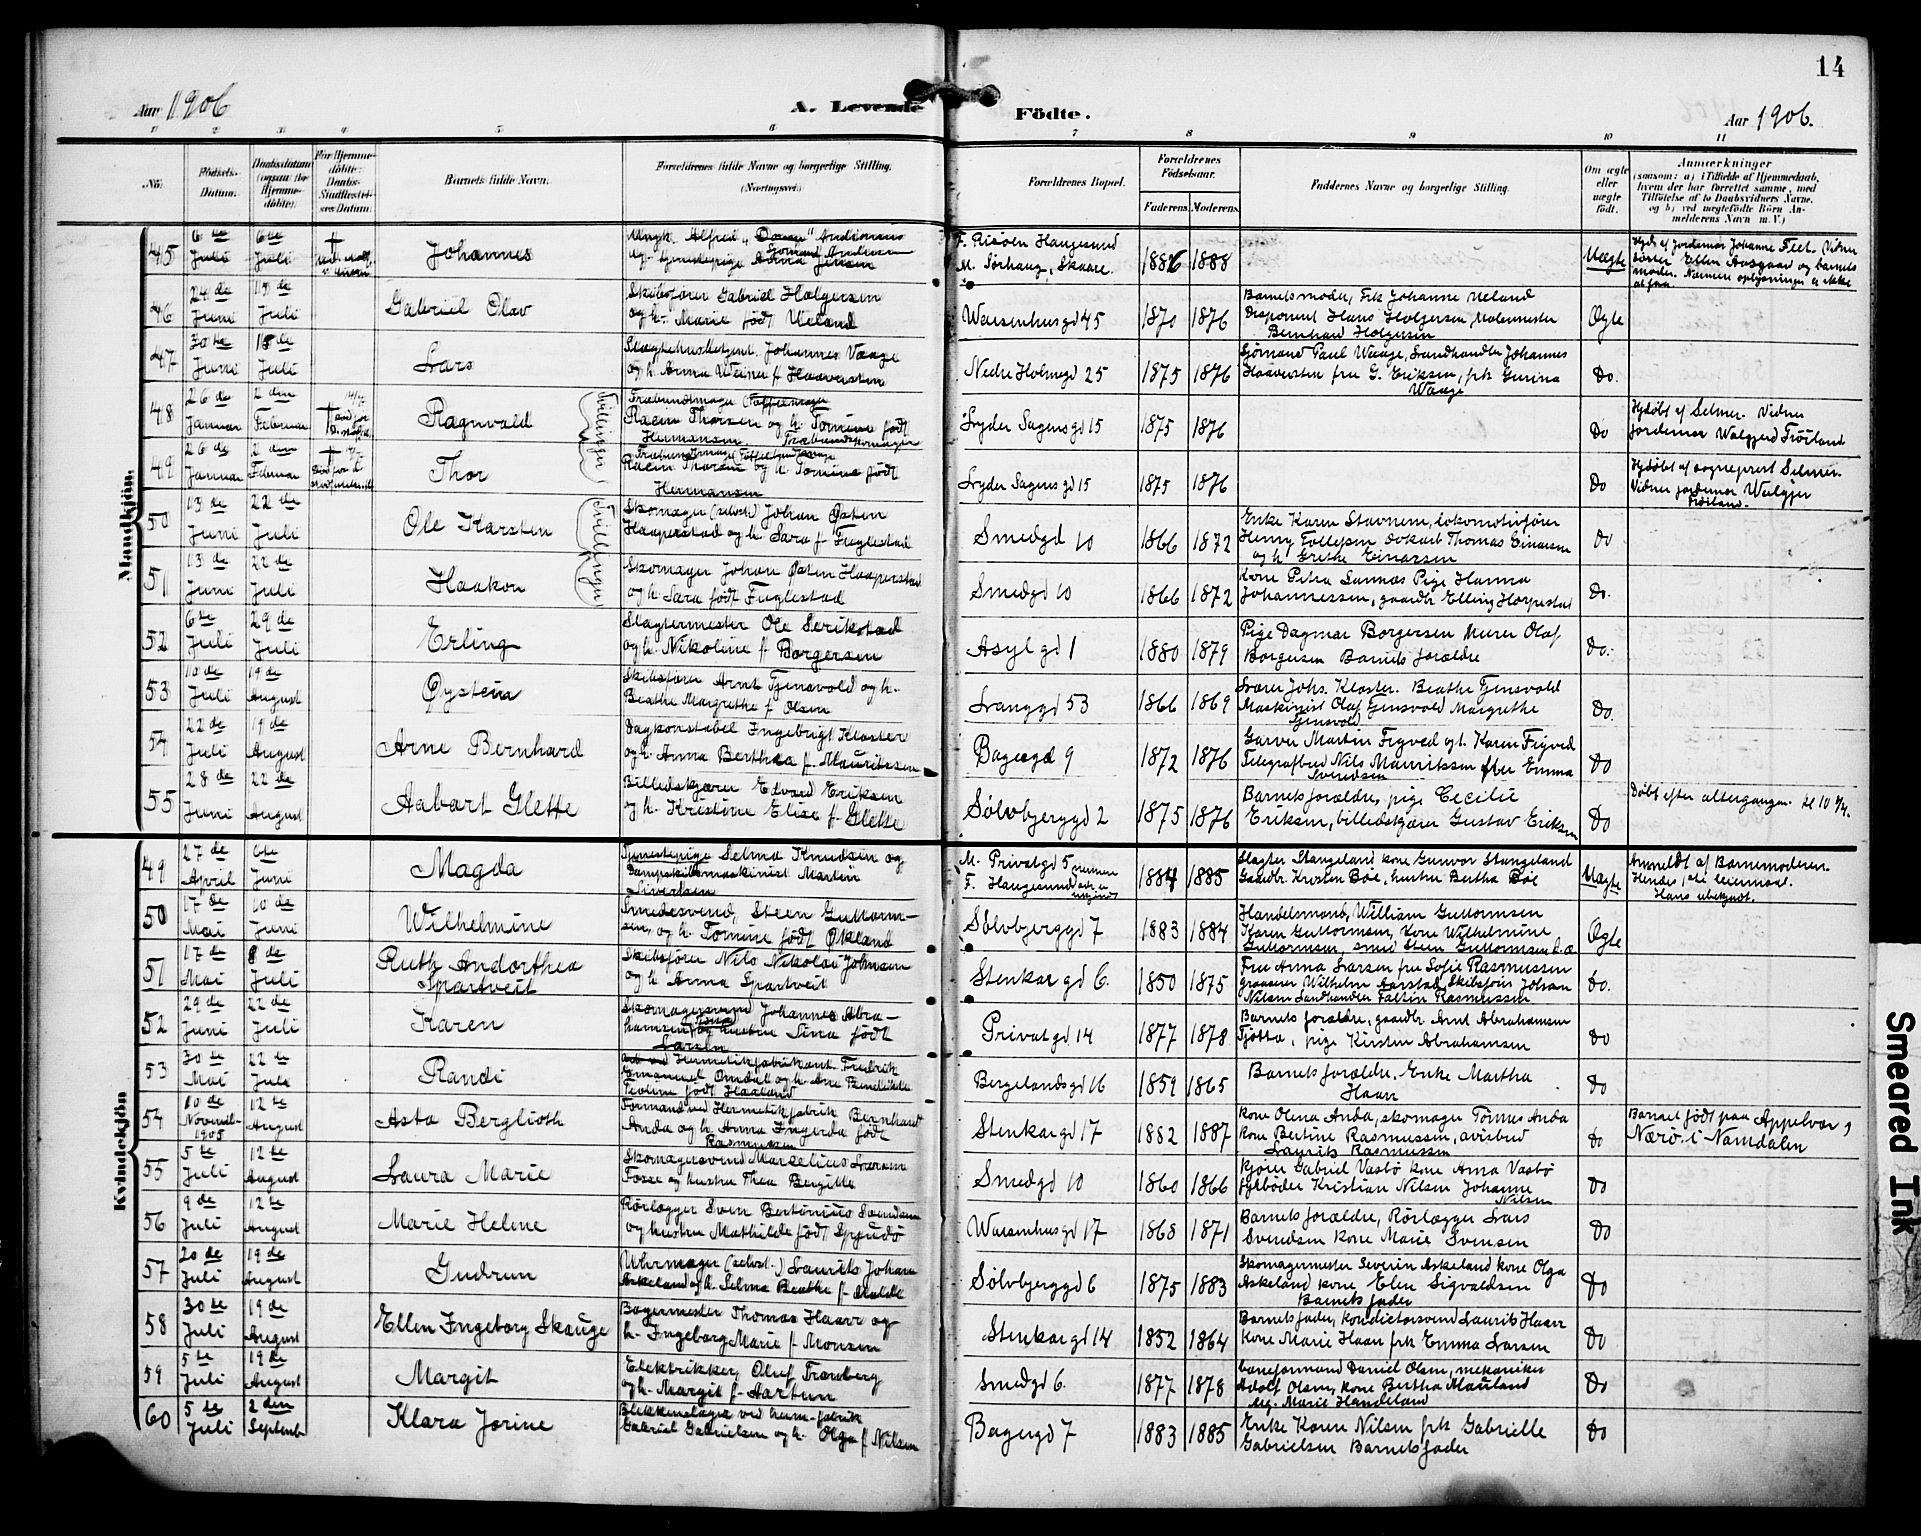 14
Aar 1906
A. Levende
Fødte.
Aar 1906.
1 2 3 4 5 6 7 8 9 10 11
No.
Fødsels-
Datum.
Daabsdatum
(ogsaa for
Hjemme-
døbte).
For Hjemme-
døbte:
Daabs-
Stadfæstel-
ses Datum.
Barnets fulde Navn.
Forældrenes fulde Navne og borgerlige Stilling.
(Næringsvei).
Forældrenes Bopæl.
Forældrenes
Fødselsaar.
Faderens.
Moderens.
Faddernes Navne og borgerlige Stilling.
Om ægte
eller
uægte
født.
Anmærkninger
(saasom: a) i Tilfælde af Hjemmedaab,
hvem der har forrettet samme, med
Tilføielse af to Daabsvidners Navne,
og b) ved uægtefødte Børn An-
melderens Navn m. V.)
Mandkjøn
45
6te Juli
6te Juli
Johannes
Ungk. Alfred Andreas
Sjømand
Ug. tjenestepige Anna Jensen
F. Risøen Haugesund
M. Sørhaug, Skaare.
1886 1888
Uægte
Hjdb. af Jordemor Johanne Vidner
søster Ellen Aasgaard og barnets
moder. Nærmere oplysninger er ikke
at faa
46
24de Juni
15de Juli
Gabriel Olav
Skibsfører Gabriel Holgersen
og h. Marie født Ueland
Waisenhusgd 45
1870 1876
Barnets moder, Frk Johanne Ueland
Disponent Hans Holgersen, Malermester
Bernhard Holgersen
Ægte
47
30te Juni
15de Juli
Lars
Slagtehusbetjent. Johannes Vaage
og h. Anna f. Haaversen
Nedre Holmegd 25
1875 1876
Sjømand Paul Waage, Landhandler Johannes
Haaversen fru G. Eriksen, frk Gurina
Waage
Do.
48
26de Januar
2den Februar
Ragnvald
Tvillinger
Rasin Thorsen og h. Tomine født
Hermansen
Lyder Sagensgd 15
1875 1876
Do
Hjdøbt af Selmer. Vidner
Jordemor Walgjerd Frøiland
49
26de Januar
2den Februar
Thor
Rasin Thorsen og h. Tomine født
Hermansen
Lyder Sagens gd 15
1875 1876
Do
Hjdøbt af sogneprest Selmer.
Vidner jordemor Walgjer
Frøiland.
50
13de Juni
22de Juli
Ole Karsten
Tvillinger
Skomager (selvst.) Johan Østen
Haaperstad og h. Sara f. Fuglestad
Smedgd 10
1866 1872
Enke Karen Stavnem, lokomotivfører
Henry Tollefsen avkarl Thomas Einarsen
og h. Grethe Einarsen
Do
51
13de Juni
22de Juli
Haakon
Skomager Johan Østen Haaperstad
og h. Sara født Fuglestad
Smedgd 10
1866 1872
Kone Petra Sannæs Pige Hanna
Johannessen, gaardbr Elling Horpestad
Do.
52
6te Juli
29de Juli
Erling
Slagtermester Ole Serikstad
og h. Nikoline f. Borgersen
Asyl gd 1
1880 1879
Pige Dagmar Borgersen Murer Olaf
Borgersen Barnets forældre
Do.
53
10de Juli
19de August
Øystein
Skibsfører Arnt Gjensvold og h.
Beathe Margrethe f. Olsen
Langgd 53
1866 1869
Lærer Johs. Kloster. Beathe Gjensvold
Maskinist Olaf Gjensvold Margrethe
Gjensvold
Do.
54
22de Juli
19de August
Arne Bernhard
Dagkonstabel Ingebrigt Kloster
og h. Anna Berthea f. Mauritzsen
Bagergd 9
1872 1876
Garver Martin Figved og h. Karen Figved
Telegrafbud Nils Mauritssen frk Emma
Svendsen
Do
55
28de Juni
22de August
Aabart Glette
Billedskjærer Edvard Eriksen
og h. Kristine Elise f. Glette
Sølvbjerggd 2
1875 1876
Barnets forældre, pige Cecilie
Eriksen, billedskjærer Gustav Eriksen
Do
Døbt efter altergangen. kl 10
Kvindekjøn
49
27de April
6te Juni
Magda
Tjenestepige Selma Knudsen og
Dampskibsmaskinist Martin
Sivertsen
M. Privatgd 5
F. Haugesund
1884 1885
Slagter Stangeland kone Gunvor Stangeland
Gaardbr. Kristen Bøe, hustru Bertha Bøe
Uægte
Anmeldt af Barnemoderen.
Hendes 1ste leiermaal.
Hans ubekjendt.
50
17de Mai
10de Juni
Wilhelmine
Smedesvend, Steen Guttorm-
sen, og h. Tomine født Økland
Sølvbjerggd 7
1883 1884
Handelsmand, William Guttormsen
Karen Guttormsen, Kone Wilhelmine
Guttormsen, smed Steen Guttormsen
Ægte
51
17de Mai
8de Juli
Ruth Andorthea
Spartveit
Skibsfører Nils Nikolai Johnsen
og h. Anna Spartveit
Stenkargd 6.
1850 1875
Fru Anna Larsen fru Sofie Rasmussen
gravører Wilhelm Aarstad Skibsfører Johan
Nilsen Landhandler Faltin Rasmussen
Do.
52
29de Juni
22de Juli
Karen
Skomagersvend Johannes Abra-
hamsen og hustru Sina født
Larsen
Privatgd 14
1877 1878
Barnets forældre, gaardbr Arnt Abrahamsen
Tjøtta, pige Kirsten Abrahamsen
Do
53
30te Mai
22de Juli
Randi
Hermetikfabrikant Fredrik
Emanuel Omdal og h. Ane Bendikte
født Haaland
Bergelandsgd 16
1859 1865
Barnets forældre, Enke Martha
Haan
Do
54
10de Novemb. 1905
12te August
Asta Berglioth
Formand ved Hermetikfabrik Bernhard
Anda og h. Anna Ingerda født
Rasmussen
Stenkargd 17
1882 1887
Kone Olena Anda, skomager Tønnes Anda
Kone Bertine Rasmussen, avisbud
Laurits Rasmussen
Do
Barnet født paa Appelvær,
Nærø i Namdalen
55
5te Juli
12te August
Laura Marie
Skomagersvend Marselius Larsen
Fosse og hustru Thea Bergitte
Smedgd 10
1860 1866
Kjører Gabriel Vasbø kone Anna Vasbø
fyrbøder Kristian Nilsen Johanne
Nilsen
Do
56
9de Juli
12te August
Marie Helene
Rørlægger Sven Bertinius Svendsen
og hustru Mathilde født Spjudø
Waisenhusgd 17
1868 1871
Barnets forældre, Rørlægger Lars
Svendsen kone Marie Svensen
Do
57
20de Juli
19de August
Gudrun
Uhrmager (selvst.) Laurits Johan
Askeland og h. Selma Beathe f. Malde
Sølvbjerggd 6
1875 1883
Skomagermester Severin Askeland kone Olga
Askeland kone Elen Sigvaldsen
Barnets fader
Do
58
30te Juli
19de August
Ellen Ingeborg Skauge
Bagermester Thomas Haarr og
h. Ingeborg Marie f. Monsen
Stenkargd 14
1852 1864
Barnets fader, konditorsvend Laurits Haarr
Kone Marie Haarr frk Emma Larsen
Do
59
5te Juli
19de August
Margit
Elektrikker, Oluf Tranberg
og h. Margit f. Aartun
Smedgd 6.
1877 1878
Baneformand Daniel Olsen, mekaniker
Adolf Olsen, kone Bertha Mauland
Ug. Marie Handeland
Do
60
5te Juli
2den Septemb.
Klara Jorine
Blekkenslager ved herm.-fabrik
Gabriel Gabrielsen og h. Olga f. Nilsen
Bagergd 7
1883 1885
Enke Karen Nilsen frk Gabrielle
Gabrielsen Barnets fader
Do
Smeared Ink